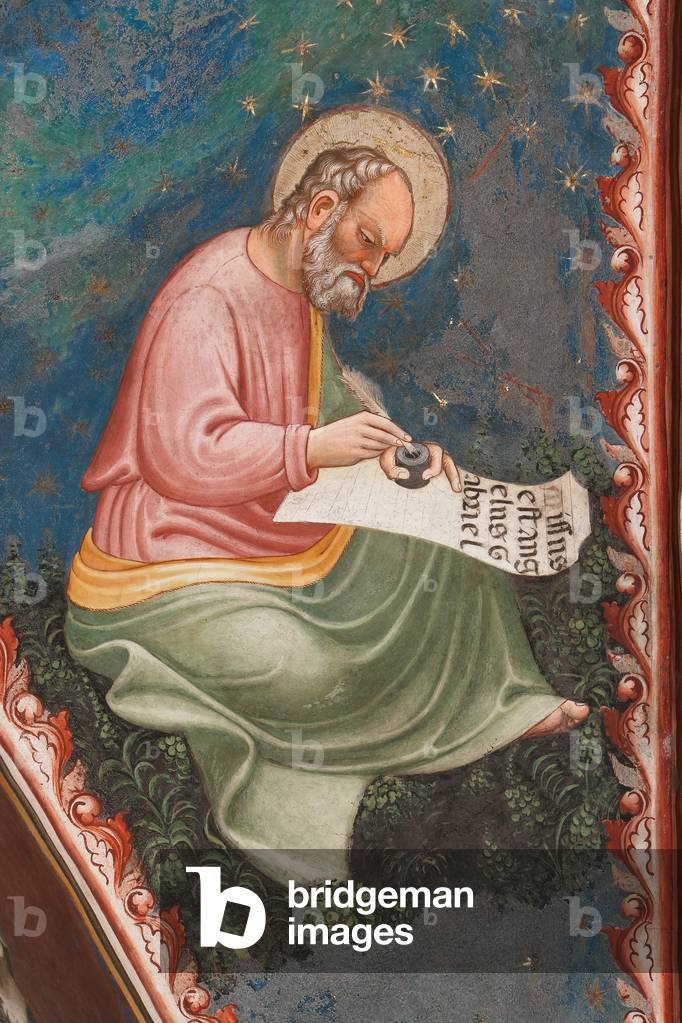 Missus
est ang
elus G
abriel
b bridgeman
images